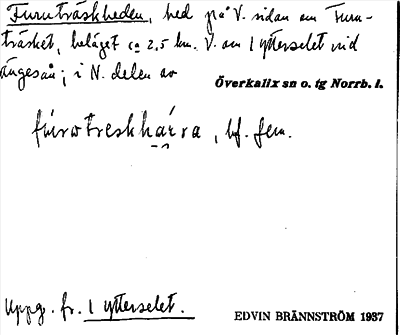 Furuträskheden, hed på V. sidan om Furu-
träsket, beläget ca 2,5 km. V. om Ytterselet vid
Ängesån; i N. delen av
Överkalix sn o. tg Norrb. l.
fúrotreskhärra, bf. fem.
Uppg. fr. Ytterselet.
EDVIN BRÄNNSTRÖM 1937